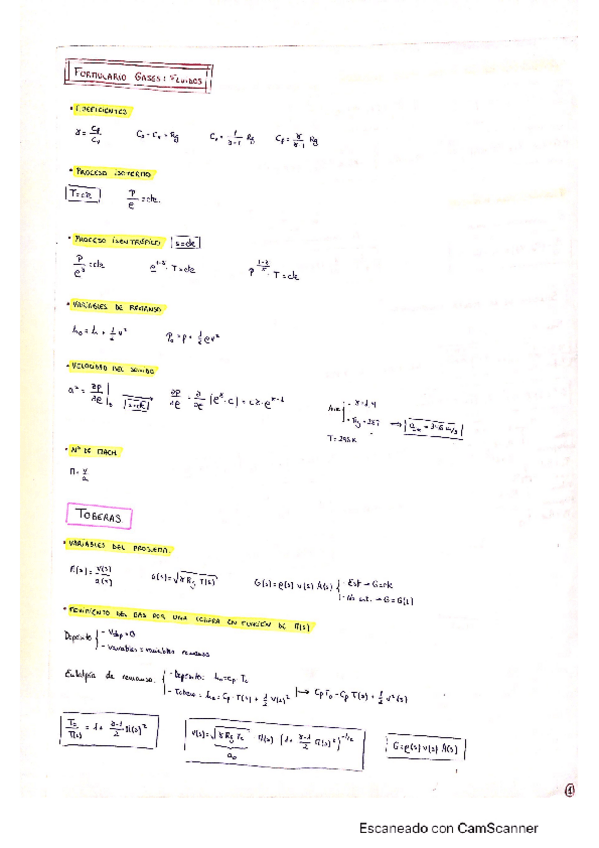 FORMULARIO GASES: FLUIDOS
• COEFICIENTES
γ = Cp/Cv   Cp - Cv = Rg   Cv = 1/(γ-1) Rg   Cp = γ/(γ-1) Rg
• PROCESO ISOTERMO
T=cte   P/ρ = cte.
• PROCESO ISENTRÓPICO   s=cte
P/ρ^γ = cte   ρ^(1-γ) · T = cte   P^((1-γ)/γ) · T = cte
• VARIABLES DE REMANSO
h₀ = h + 1/2 v²   P₀ = P + 1/2 ρv²
• VELOCIDAD DEL SONIDO
a² = ∂P/∂ρ |s   s=cte → ∂P/∂ρ = ∂/∂ρ [ρ^γ · c] = cγ · ρ^(γ-1)
Aire { - γ = 1,4
- Rg = 287
T = 298K
• Nº DE MACH
M = v/a
TOBERAS
• VARIABLES DEL PROBLEMA.
M(s) = v(s)/a(s)   a(s) = √(γ Rg T(s))   G(s) = ρ(s) v(s) A(s) { - Est → G=cte
- No est. → G=G(t)
DEL GAS POR UNA TOBERA EN FUNCIÓN DE M(s)
Depósito { - Vdep = 0
- Variables = variables remanso
Entalpía de remanso. { - Depósito: h₀ = cp T₀
- Tobera = h₀ = Cp · T(s) + 1/2 v(s)² → Cp T₀ = Cp T(s) + 1/2 v²(s)
T₀/T(s) = 1 + (γ-1)/2 M(s)²   v(s) = √(γ Rg T₀) M(s) (1 + (γ-1)/2 M(s)²)^(-1/2)   G = ρ(s) v(s) A(s)
a₀
1
Escaneado con CamScanner